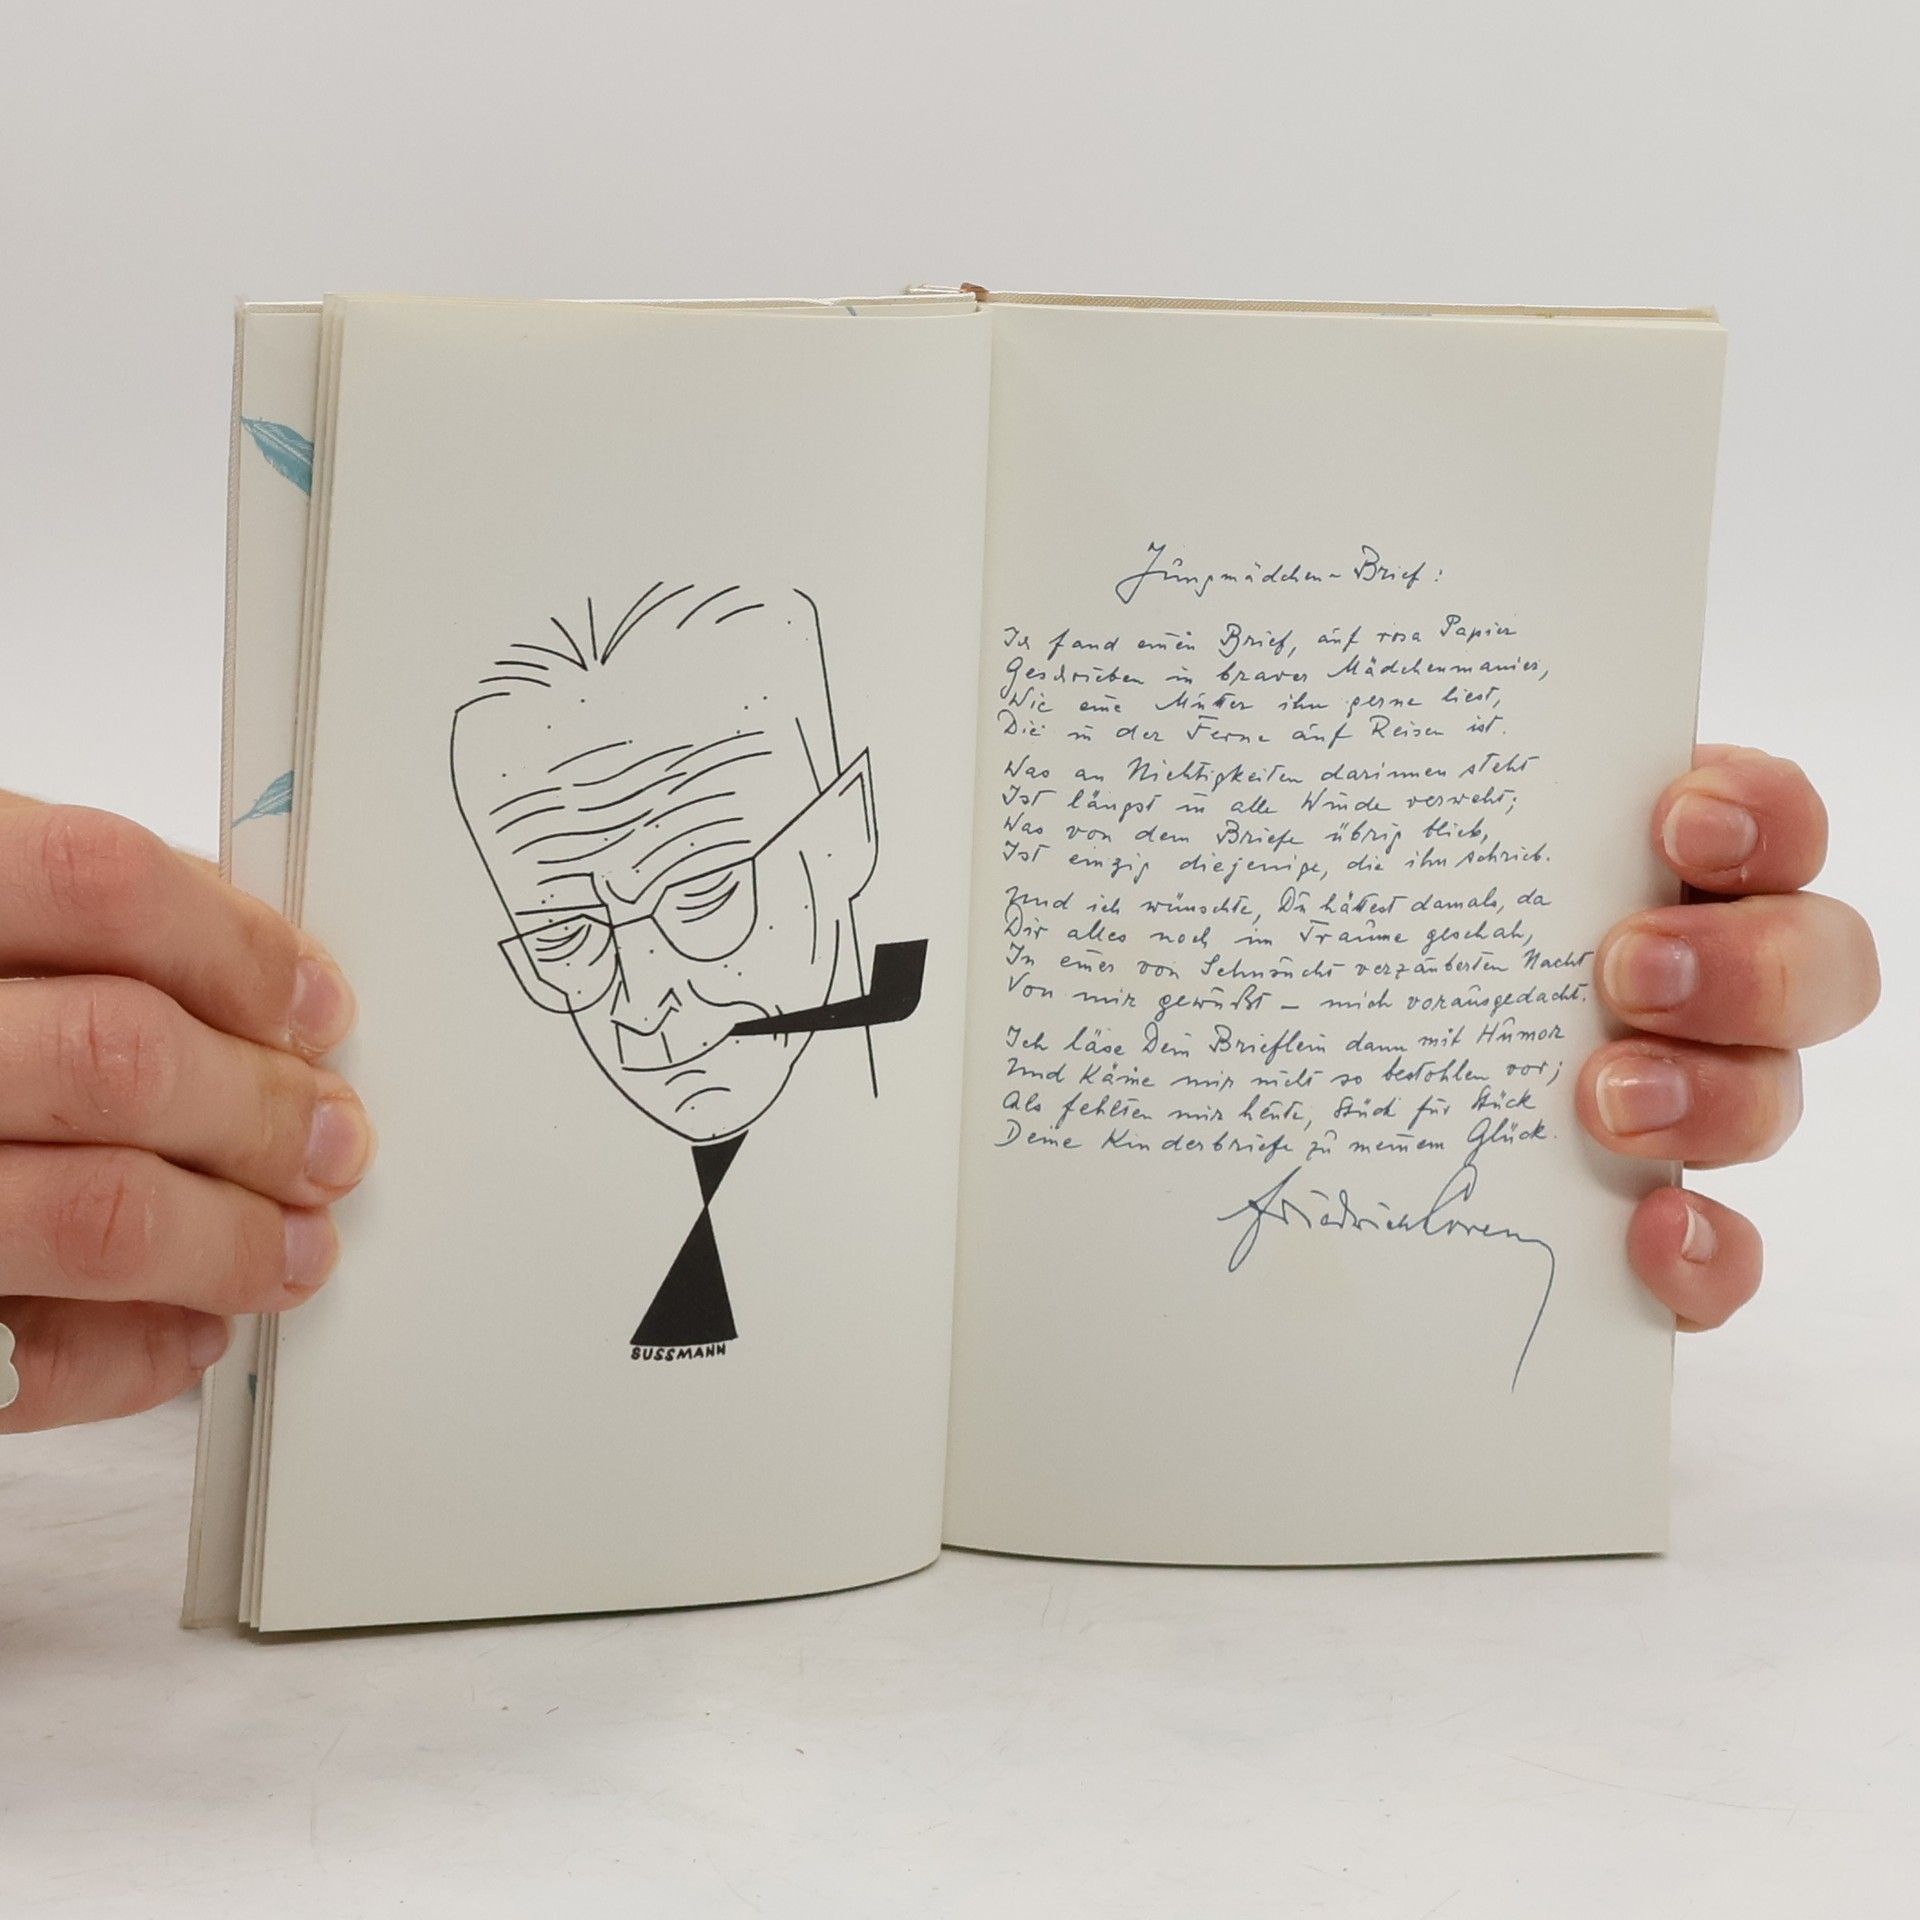 SUSSMANN
Jungmädchen-Brief:
Ich fand einen Brief, auf rosa Papier
Geschrieben in braver Mädchenmanier,
Wie eine Mutter ihn gerne liest,
Die in der Ferne auf Reisen ist.
Was an Nichtigkeiten darinnen steht
Ist längst in alle Winde verweht;
Was von dem Briefe übrig blieb,
Ist einzig diejenige, die ihn schrieb.
Und ich wünschte, Du hättest damals, da
Dir alles noch im Traume geschah,
In einer von Sehnsucht verzauberten Nacht
Von mir gewußt – mich vorausgedacht.
Ich läse Dein Brieflein dann mit Humor
Und käme mir nicht so bestohlen vor;
Als fehlten mir heute, Stück für Stück
Deine Kinderbriefe zu meinem Glück.
Friedrich Lorenz